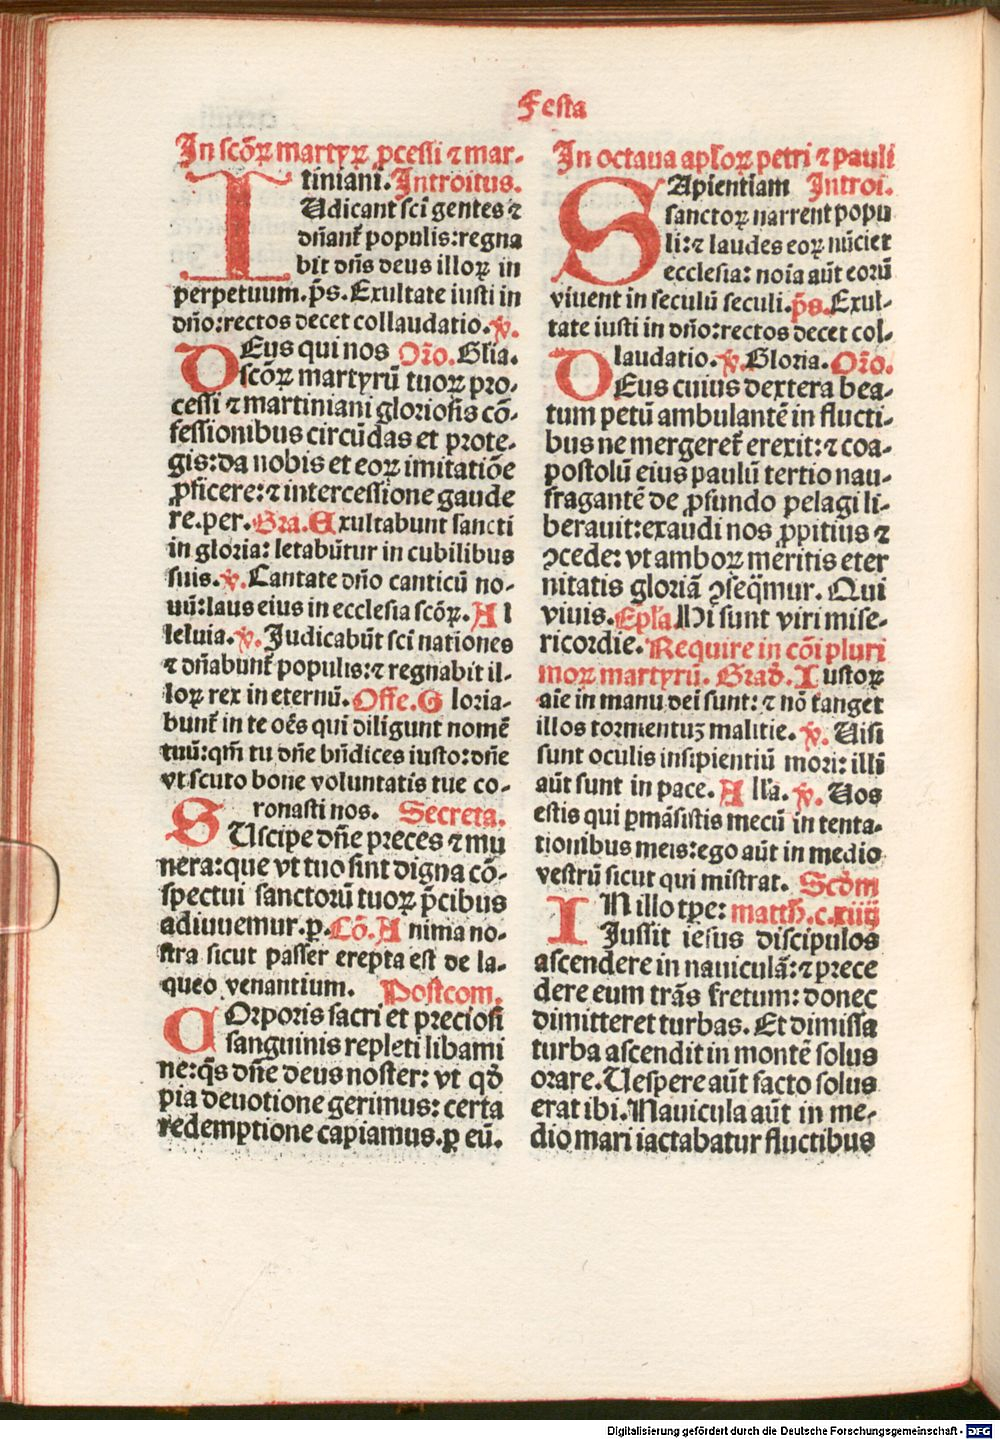 Festa
In scōꝝ martyꝝ ꝓcessi ⁊ mar-
tiniani. Introitus.
IUdicant sci̅ gentes ⁊
dn̄ant᷑ populis: regna
bit dn̄s deus illoꝝ in
perpetuum. p̄s. Exultate iusti in
dn̄o: rectos decet collaudatio. ℣.
DEus qui nos Or̄o. Gl̄ia.
scōꝝ martyrū tuoꝝ pro-
cessi ⁊ martiniani gloriosis cō-
fessionibus circūdas et prote-
gis: da nobis et eoꝝ imitatiōe
ꝓficere: ⁊ intercessione gaude
re. per. Gra. Exultabunt sancti
in gloria: letabūtur in cubilibus
suis. ℣. Cantate dn̄o canticū no-
uū: laus eius in ecclesia scōꝝ. Al
leluia. ℣. Judicabūt sci̅ nationes
⁊ dn̄abunt᷑ populis: ⁊ regnabit il-
loꝝ rex in eternū. Offe. Gloria-
bunt᷑ in te oēs qui diligunt nomē
tuū: qm̄ tu dn̄e bn̄dices iusto: dn̄e
vt scuto bone voluntatis tue co-
ronasti nos. Secreta.
SUscipe dn̄e preces ⁊ mu
nera: que vt tuo sint digna cō-
spectui sanctorū tuoꝝ p̄cibus
adiuuemur. ꝑ. Cō. Anima no-
stra sicut passer erepta est de la-
queo venantium. Postcom.
COrporis sacri et preciosi
sanguinis repleti libami
ne: qs̄ dn̄e deus noster: vt qd̄
pia deuotione gerimus: certa
redemptione capiamus. ꝑ eū.
In octaua apl̄oꝝ petri ⁊ pauli
SApientiam Introi.
sanctoꝝ narrent popu
li: ⁊ laudes eoꝝ nūciet
ecclesia: noīa aūt eorū
viuent in seculū seculi. p̄s. Exul-
tate iusti in dn̄o: rectos decet col-
laudatio. ℣. Gloria. Or̄o.
DEus cuius dextera bea-
tum petū ambulantē in flucti-
bus ne mergeret᷑ erexit: ⁊ coa-
postolū eius paulū tertio nau-
fragantē de ꝓfundo pelagi li-
berauit: exaudi nos ꝓpitius ⁊
ꝯcede: vt amboꝝ meritis eter
nitatis gloriā ꝯseq̄mur. Qui
viuis. Epl̄a. Hi sunt viri mise-
ricordie. Require in cōi pluri
moꝝ martyrū. Grad̄. Iustoꝝ
aīe in manu dei sunt: ⁊ nō tanget
illos tormentuꝫ malitie. ℣. Uisi
sunt oculis insipientiū mori: illi
aūt sunt in pace. All̄a. ℣. Uos
estis qui ꝑmāsistis mecū in tenta-
tionibus meis: ego aūt in medio
vestrū sicut qui mistrat. Scd̄m
IN illo tp̄e: matth̄. c. xiiij
Jussit iesus discipulos
ascendere in nauiculā: ⁊ prece
dere eum trās fretum: donec
dimitteret turbas. Et dimissa
turba ascendit in montē solus
orare. Uespere aūt facto solus
erat ibi. Nauicula aūt in me-
dio mari iactabatur fluctibus
Digitalisierung gefördert durch die Deutsche Forschungsgemeinschaft - DFG